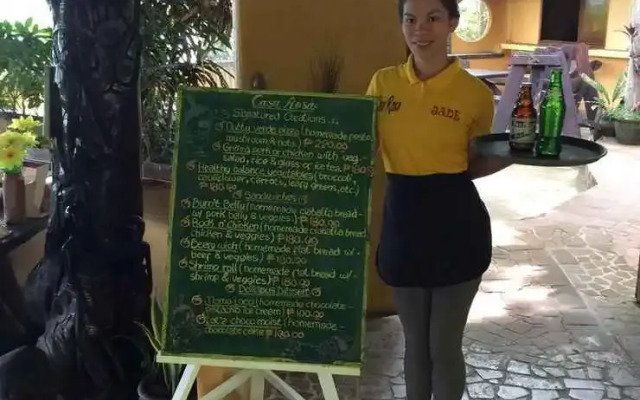 Casa Rosa
Signatured Creations
verde pasta (homemade pasta
mushroom & nuts) ₱ 280.00
Grilled pork or chicken with veg.
salad, rice & glass of ice tea ₱ 180.00
Healthy balance vegetables (broccoli,
cauliflower, carrots, leafy greens, etc)
₱ 180.00
Sandwiches
Belly (homemade ciabatta bread
w/ pork belly & veggies) ₱ 180.00
chicken (homemade ciabatta bread
chicken & veggies) ₱ 180.00
(homemade flat bread w/
beef & veggies) ₱ 180.00
Shrimp roll (homemade flat bread w/
shrimp & veggies) ₱ 180.00
Delicious Desserts
Loco (homemade chocolate
ice cream) ₱ 100.00
choco moist (homemade
chocolate cake)